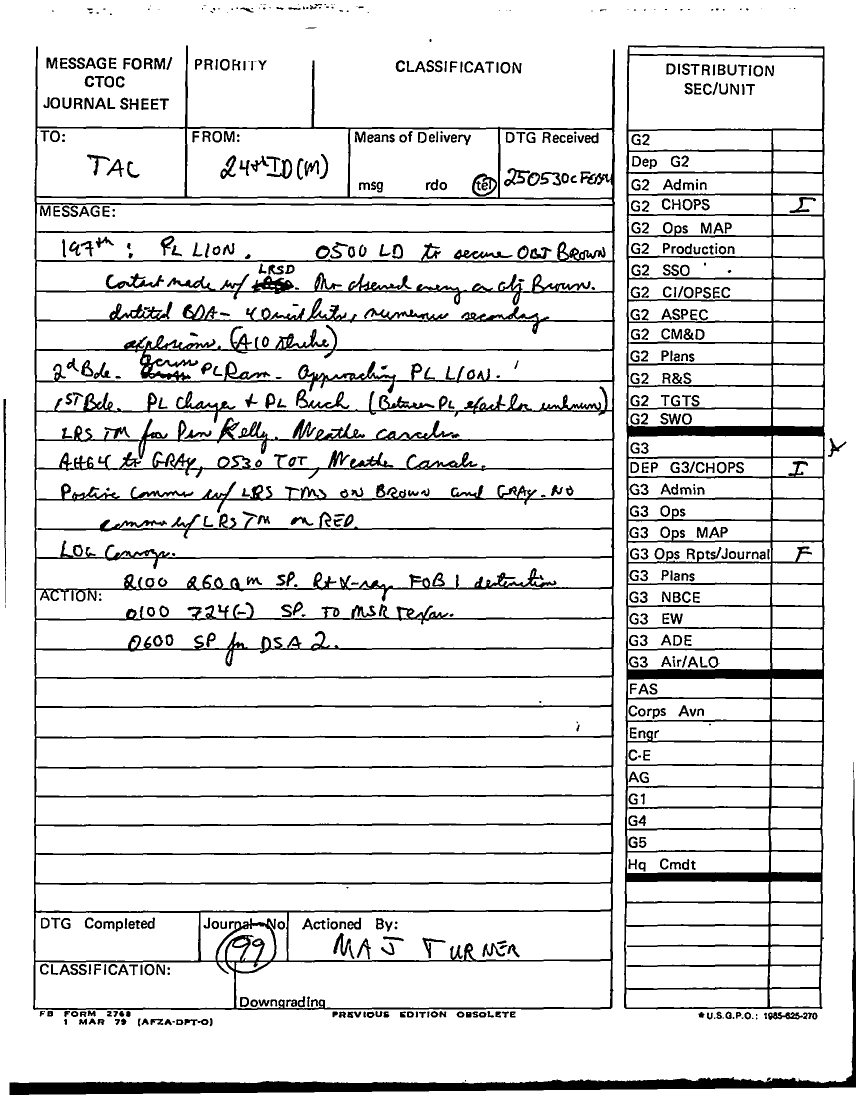 MESSAGE FORM/
CTOC
JOURNAL SHEET
PRIORITY
CLASSIFICATION
TO:
TAC
FROM:
24th ID(M)
Means of Delivery
msg rdo tel
DTG Received
250530C FEB
MESSAGE:
197th: PL LION. 0500 LD to secure OBJ BROWN
Contact made w/ LRSD. No observed enemy on obj Brown.
BDA - 40 numerous secondary
explosions. (A10 strike)
2d Bde. PL Ram - Approaching PL LION.
1ST Bde. PL Charger + PL Buck (Between PL, exact loc unknown)
LRS TM for Kelly. Weather
AH64 to GRAY, 0530 TOT, Weather
Positive commo w/ LRS TMS ON BROWN and GRAY. NO
commo w/ LRS TM on RED.
LOG Convoys.
2100 260 QM SP. Rt X-ray FOB 1 destination
ACTION:
0100 724(-) SP. TO MSR Texas.
0600 SP for DSA 2.
DTG Completed
Journal No.
99
Actioned By:
MAJ TURNER
CLASSIFICATION:
Downgrading
FB FORM 2768
1 MAR 79 (AFZA-DPT-O)
PREVIOUS EDITION OBSOLETE
DISTRIBUTION
SEC/UNIT
G2
Dep G2
G2 Admin
G2 CHOPS I
G2 Ops MAP
G2 Production
G2 SSO
G2 CI/OPSEC
G2 ASPEC
G2 CM&D
G2 Plans
G2 R&S
G2 TGTS
G2 SWO
G3
DEP G3/CHOPS I
G3 Admin
G3 Ops
G3 Ops MAP
G3 Ops Rpts/Journal F
G3 Plans
G3 NBCE
G3 EW
G3 ADE
G3 Air/ALO
FAS
Corps Avn
Engr
C-E
AG
G1
G4
G5
Hq Cmdt
*U.S.G.P.O.: 1985-625-270